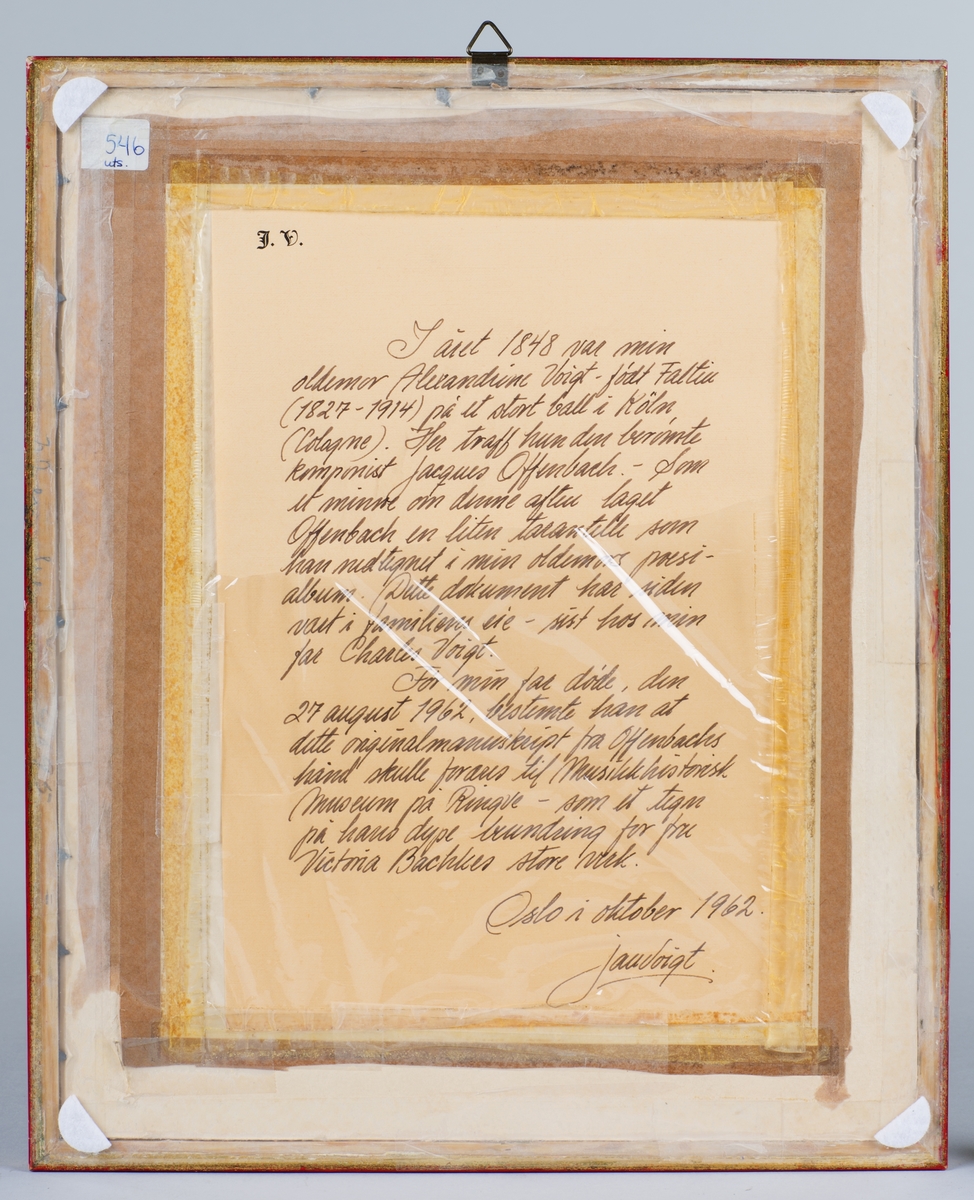 546
uts.
J. V.
I året 1848 var min
oldemor Alexandrine Voigt - født Faltin
(1827 - 1914) på et stort ball i Köln
(Cologne). Her traff hun den berømte
komponist Jacques Offenbach. - Som
et minne om denne aften laget
Offenbach en liten tarantelle som
han nedtegnet i min oldemors poesi-
album. Dette dokument har siden
vært i familiens eie - sist hos min
far Charles Voigt.
Før min far døde, den
27 august 1962, bestemte han at
dette originalmanuskript fra Offenbachs
hånd skulle foræres til Musikkhistorisk
Museum på Ringve - som et tegn
på hans dype beundring for fru
Victoria Bachkes store verk.
Oslo i oktober 1962.
Jan Voigt.